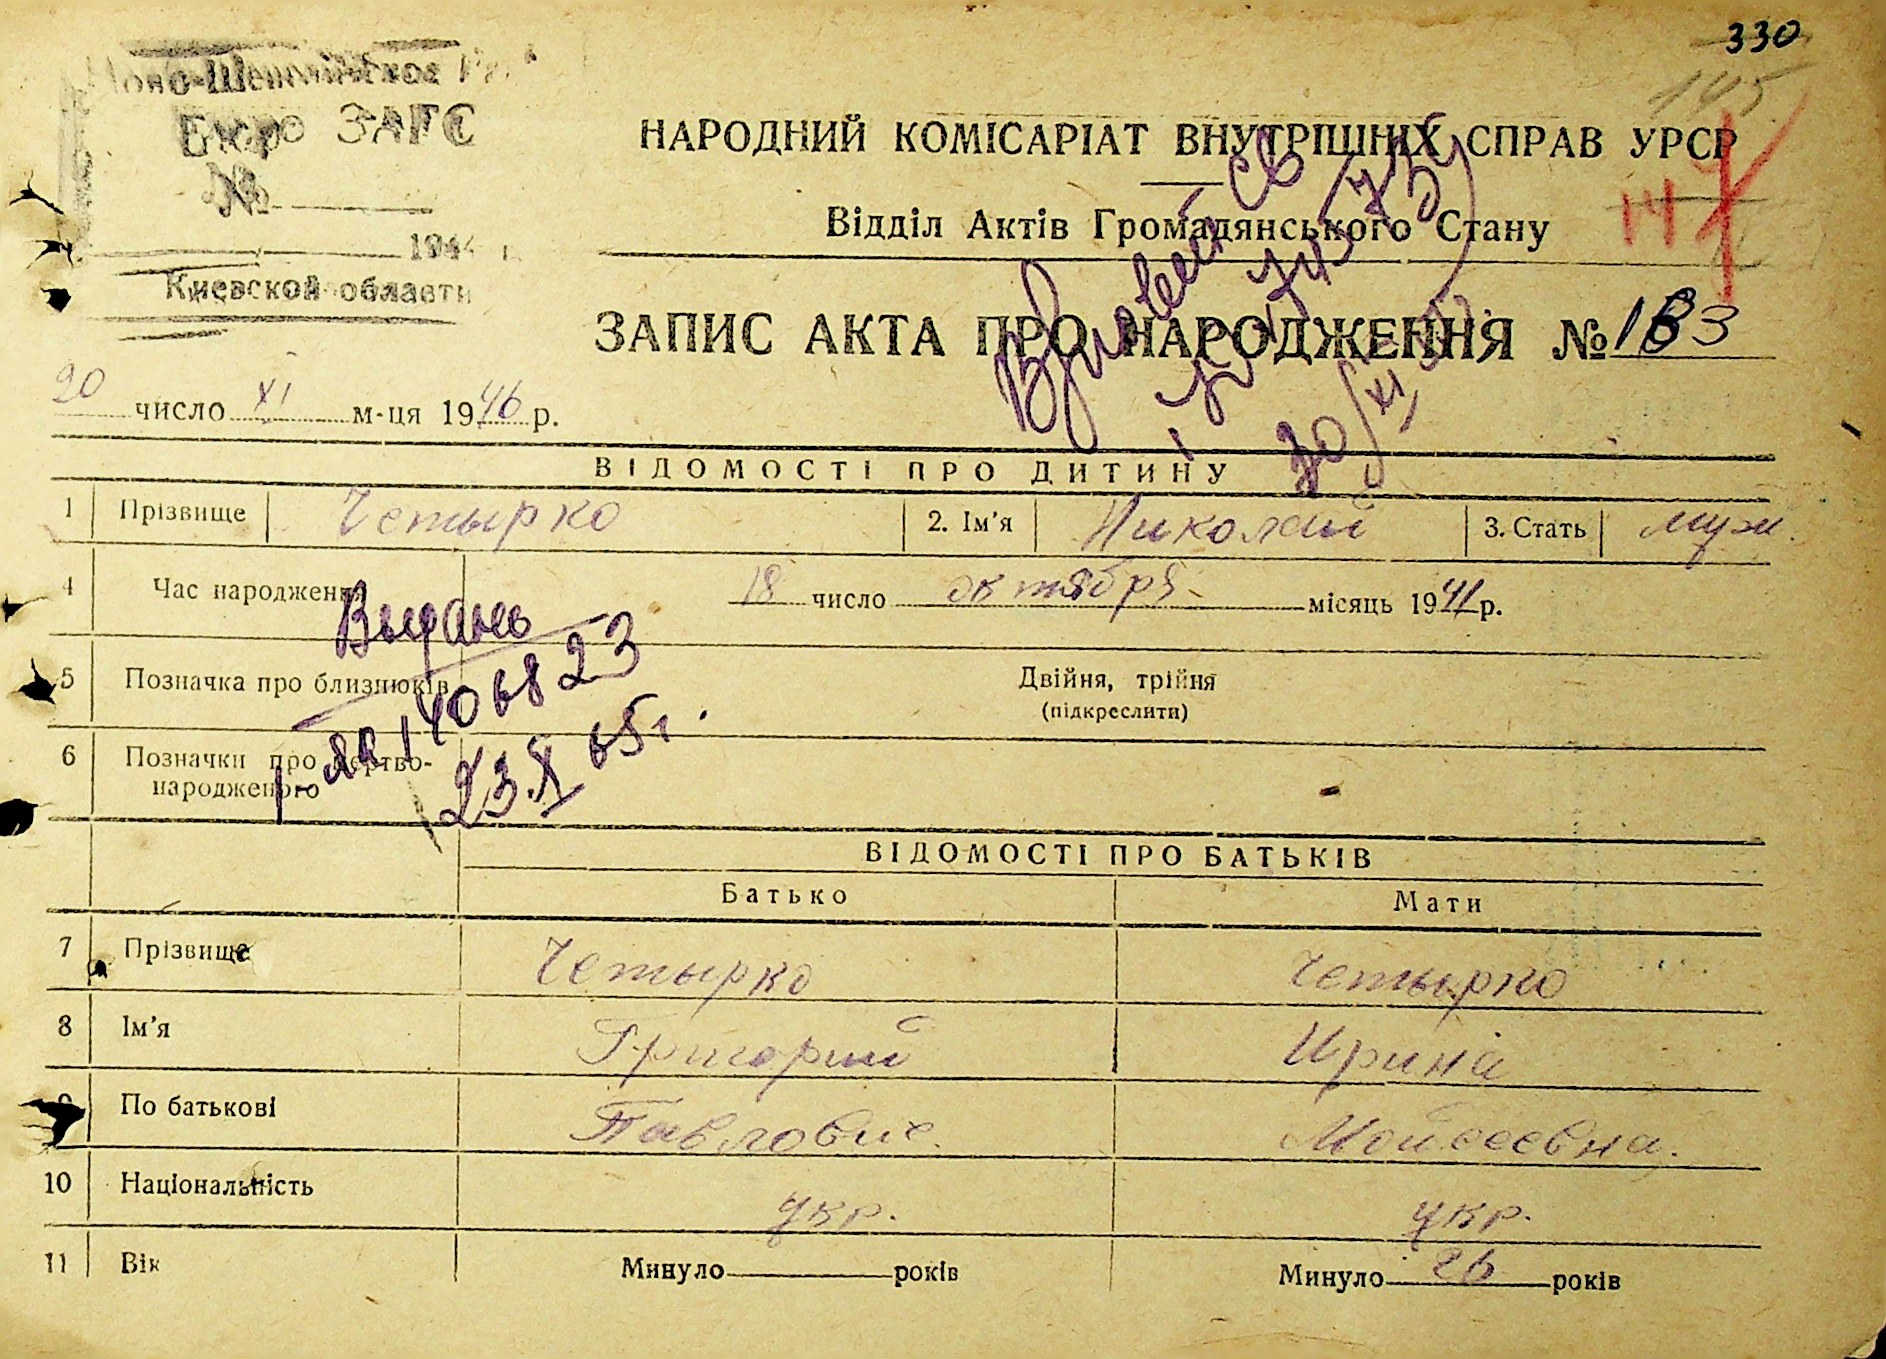 330
145
Бюро ЗАГС
№
1944 г.
Киевской области
НАРОДНИЙ КОМІСАРІАТ ВНУТРІШНІХ СПРАВ УРСР
Відділ Актів Громадянського Стану
ЗАПИС АКТА ПРО НАРОДЖЕННЯ № 133
20 число XI м-ця 1946 р.
ВІДОМОСТІ ПРО ДИТИНУ
1 Прізвище Четырко 2. Ім'я Николай 3. Стать муж.
4 Час народження 18 число октября місяць 1941 р.
5 Позначка про близнюків Двійня, трійня
(підкреслити)
6 Позначки про мертво-
народженого
23.X 65 г.
ВІДОМОСТІ ПРО БАТЬКІВ
Батько Мати
7 Прізвище Четырко Четырко
8 Ім'я Григорий Ирина
9 По батькові Павлович. Мойсеевна.
10 Національність укр. укр.
11 Вік Минуло років Минуло 26 років